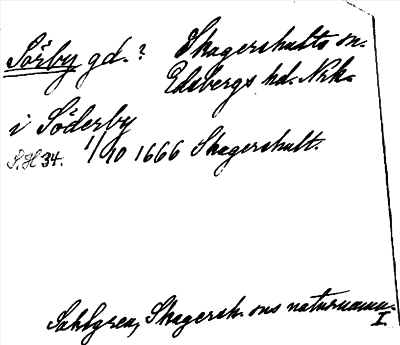 Sörby gd.? Skagershults sn.
Edsbergs hd. Nrk.
i Söderby
S.H 34. 1/10 1666 Skagershult.
Sahlgren, Skagersh. sns naturnamn.
I.